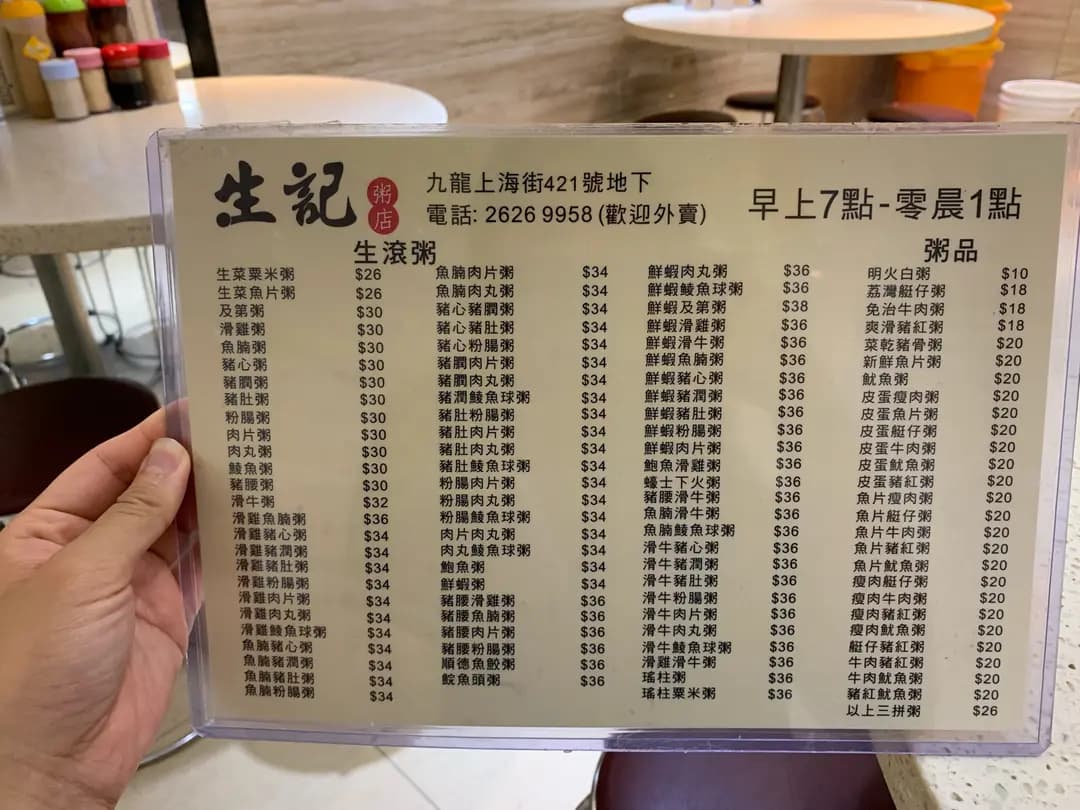 生記 粥店
九龍上海街421號地下
電話: 2626 9958 (歡迎外賣)
早上7點-零晨1點
生滾粥
生菜粟米粥 $26
生菜魚片粥 $26
及第粥 $30
滑雞粥 $30
魚腩粥 $30
豬心粥 $30
豬膶粥 $30
豬肚粥 $30
粉腸粥 $30
肉片粥 $30
肉丸粥 $30
鯪魚粥 $30
豬腰粥 $30
滑牛粥 $32
滑雞魚腩粥 $36
滑雞豬心粥 $34
滑雞豬潤粥 $34
滑雞豬肚粥 $34
滑雞粉腸粥 $34
滑雞肉片粥 $34
滑雞肉丸粥 $34
滑雞鯪魚球粥 $34
魚腩豬心粥 $34
魚腩豬潤粥 $34
魚腩豬肚粥 $34
魚腩粉腸粥 $34
魚腩肉片粥 $34
魚腩肉丸粥 $34
豬心豬膶粥 $34
豬心豬肚粥 $34
豬心粉腸粥 $34
豬膶肉片粥 $34
豬膶肉丸粥 $34
豬潤鯪魚球粥 $34
豬肚粉腸粥 $34
豬肚肉片粥 $34
豬肚肉丸粥 $34
豬肚鯪魚球粥 $34
粉腸肉片粥 $34
粉腸肉丸粥 $34
粉腸鯪魚球粥 $34
肉片肉丸粥 $34
肉丸鯪魚球粥 $34
鮑魚粥 $34
鮮蝦粥 $34
豬腰滑雞粥 $36
豬腰魚腩粥 $36
豬腰肉片粥 $36
豬腰粉腸粥 $36
順德魚餃粥 $36
鯇魚頭粥 $36
鮮蝦肉丸粥 $36
鮮蝦鯪魚球粥 $36
鮮蝦及第粥 $38
鮮蝦滑雞粥 $36
鮮蝦滑牛粥 $36
鮮蝦魚腩粥 $36
鮮蝦豬心粥 $36
鮮蝦豬潤粥 $36
鮮蝦豬肚粥 $36
鮮蝦粉腸粥 $36
鮮蝦肉片粥 $36
鮑魚滑雞粥 $36
蠔士下火粥 $36
豬腰滑牛粥 $36
魚腩滑牛粥 $36
魚腩鯪魚球粥 $36
滑牛豬心粥 $36
滑牛豬潤粥 $36
滑牛豬肚粥 $36
滑牛粉腸粥 $36
滑牛肉片粥 $36
滑牛肉丸粥 $36
滑牛鯪魚球粥 $36
滑雞滑牛粥 $36
瑤柱粥 $36
瑤柱粟米粥 $36
粥品
明火白粥 $10
荔灣艇仔粥 $18
免治牛肉粥 $18
爽滑豬紅粥 $18
菜乾豬骨粥 $20
新鮮魚片粥 $20
魷魚粥 $20
皮蛋瘦肉粥 $20
皮蛋魚片粥 $20
皮蛋艇仔粥 $20
皮蛋牛肉粥 $20
皮蛋魷魚粥 $20
皮蛋豬紅粥 $20
魚片瘦肉粥 $20
魚片艇仔粥 $20
魚片牛肉粥 $20
魚片豬紅粥 $20
魚片魷魚粥 $20
瘦肉艇仔粥 $20
瘦肉牛肉粥 $20
瘦肉豬紅粥 $20
瘦肉魷魚粥 $20
艇仔豬紅粥 $20
牛肉豬紅粥 $20
牛肉魷魚粥 $20
豬紅魷魚粥 $20
以上三拼粥 $26